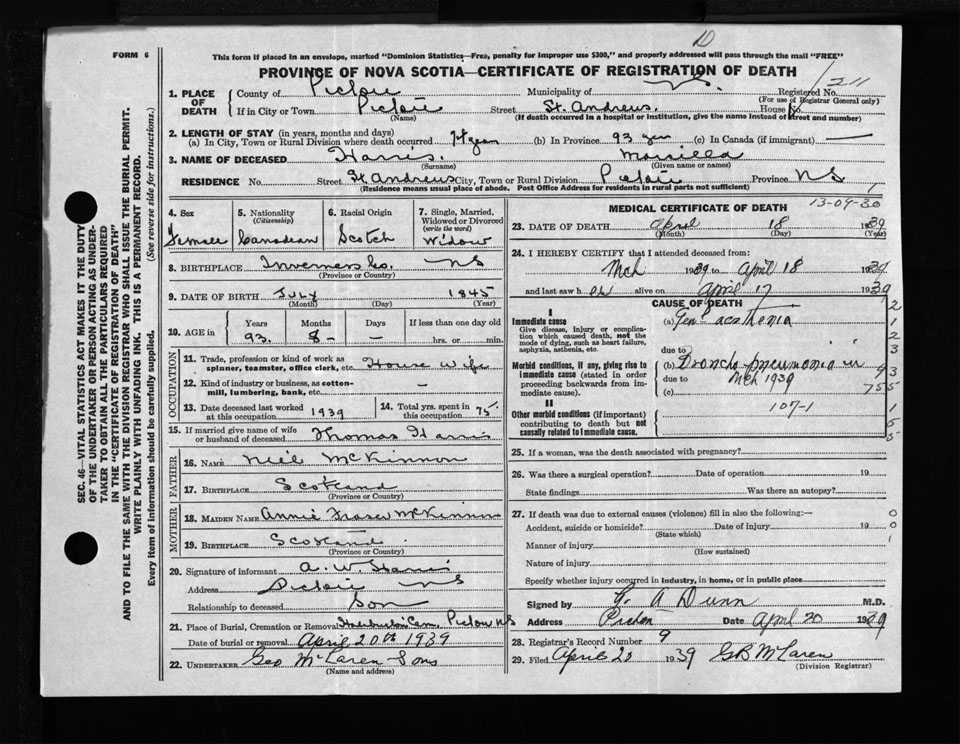 FORM 6
This form if placed in an envelope, marked "Dominion Statistics—Free, penalty for improper use $300," and properly addressed will pass through the mail "FREE"
PROVINCE OF NOVA SCOTIA—CERTIFICATE OF REGISTRATION OF DEATH
1. PLACE OF DEATH County of Pictou Municipality of N.S. Registered No. 211
(For use of Registrar General only)
If in City or Town Pictou Street St. Andrews. House No.
(Name) (If death occurred in a hospital or institution, give the name instead of street and number)
2. LENGTH OF STAY (in years, months and days)
(a) In City, Town or Rural Division where death occurred 74 years (b) In Province 93 yrs (c) In Canada (if immigrant) —
3. NAME OF DECEASED Harris.
(Surname) (Given name or names)
RESIDENCE No. Street St. Andrews City, Town or Rural Division Pictou Province N.S.
(Residence means usual place of abode. Post Office Address for residents in rural parts not sufficient)
4. Sex Female
5. Nationality (Citizenship) Canadian
6. Racial Origin Scotch
7. Single, Married, Widowed or Divorced (write the word) Widow
8. BIRTHPLACE Inverness Co. N.S.
(Province or Country)
9. DATE OF BIRTH July 1845
(Month) (Day) (Year)
10. AGE in Years 93. Months 8 - Days — If less than one day old hrs. or min.
OCCUPATION
11. Trade, profession or kind of work as spinner, teamster, office clerk, etc. House wife
12. Kind of industry or business, as cotton-mill, lumbering, bank, etc. —
13. Date deceased last worked at this occupation 1939
14. Total yrs. spent in this occupation 75
15. If married give name of wife or husband of deceased Thomas Harris
FATHER
16. NAME Neil McKinnon
17. BIRTHPLACE Scotland
(Province or Country)
MOTHER
18. MAIDEN NAME Annie Fraser McKinnon
19. BIRTHPLACE Scotland
(Province or Country)
20. Signature of informant A. W. Harris
Address Pictou N.S.
Relationship to deceased Son
21. Place of Burial, Cremation or Removal Haliburton Cem. Pictou N.S.
Date of burial or removal April 20th 1939
22. UNDERTAKER Geo McLaren Sons
(Name and address)
MEDICAL CERTIFICATE OF DEATH
13-09-30
23. DATE OF DEATH April 18 1939
(Month) (Day) (Year)
24. I HEREBY CERTIFY that I attended deceased from:
Mch 1939 to April 18 1939
and last saw her alive on April 17 1939
CAUSE OF DEATH
I
Immediate cause
Give disease, injury or complication which caused death, not the mode of dying, such as heart failure, asphyxia, asthenia, etc.
(a) Gen'l aesthenia
due to
Morbid conditions, if any, giving rise to immediate cause (stated in order proceeding backwards from immediate cause)
(b) Broncho-pneumonia in
due to Mch 1939
(c)
II
Other morbid conditions (if important) contributing to death but not causally related to immediate cause.
107-1
25. If a woman, was the death associated with pregnancy?
26. Was there a surgical operation? Date of operation 19
State findings Was there an autopsy?
27. If death was due to external causes (violence) fill in also the following:—
Accident, suicide or homicide? Date of injury 19
(State which)
Manner of injury
(How sustained)
Nature of injury
Specify whether injury occurred in industry, in home, or in public place
Signed by G. A Dunn M.D.
Address Pictou Date April 20 1939
28. Registrar's Record Number 9
29. Filed April 20 1939 G B McLaren
(Division Registrar)
SEC. 46—VITAL STATISTICS ACT MAKES IT THE DUTY OF THE UNDERTAKER OR PERSON ACTING AS UNDERTAKER TO OBTAIN ALL THE PARTICULARS REQUIRED IN THE "CERTIFICATE OF REGISTRATION OF DEATH" AND TO FILE THE SAME WITH THE DIVISION REGISTRAR WHO SHALL ISSUE THE BURIAL PERMIT.
WRITE PLAINLY WITH UNFADING INK. THIS IS A PERMANENT RECORD.
Every item of information should be carefully supplied. (See reverse side for instructions.)